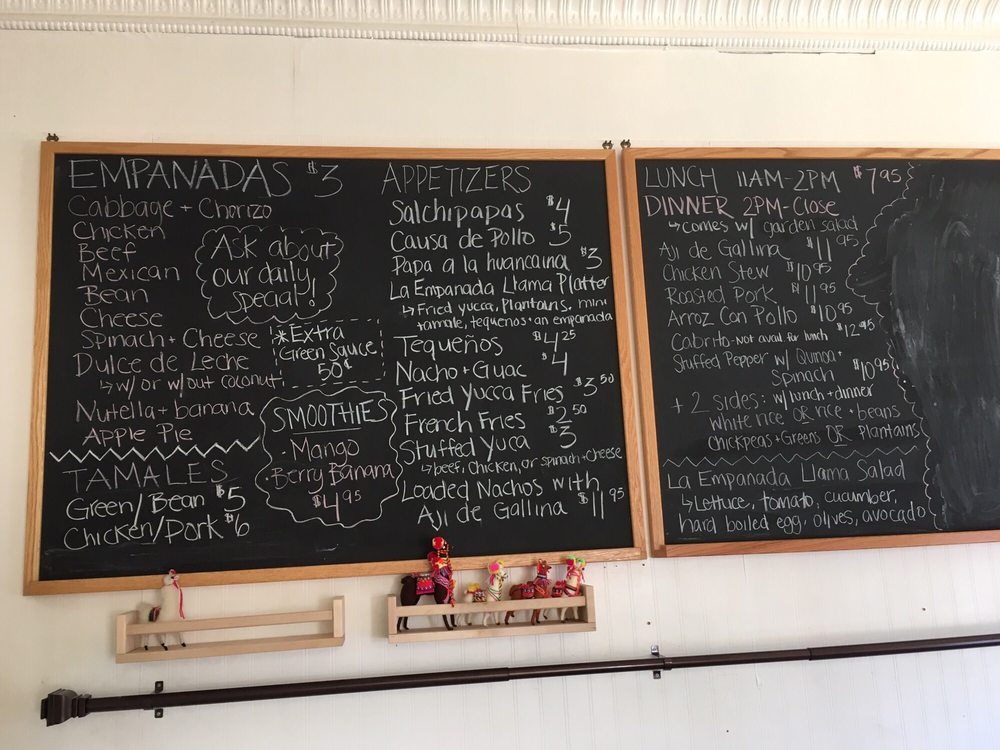 EMPANADAS $3
Cabbage + Chorizo
Chicken
Beef
Mexican
Bean
Cheese
Spinach + Cheese
Dulce de Leche
↳ w/ or w/out coconut
Nutella + banana
Apple Pie
Ask about
our daily
special!
*Extra
Green Sauce
50¢
TAMALES
Green/Bean $5
Chicken/Pork $6
SMOOTHIES
- Mango
- Berry Banana
$4.95
APPETIZERS
Salchipapas $4
Causa de Pollo $5
Papa a la huancaina $3
La Empanada Llama Platter
↳ Fried yucca, Plantains, mini
tamale, tequenos + an empanada
Tequeños $4.25
Nacho + Guac $4
Fried Yucca Fries $3.50
French Fries $2.50
Stuffed Yuca $3
↳ beef, chicken, or spinach + cheese
Loaded Nachos with
Aji de Gallina $11.95
LUNCH 11AM-2PM $7.95
DINNER 2PM-Close
↳ comes w/ garden salad
Aji de Gallina $11.95
Chicken Stew $10.95
Roasted Pork $11.95
Arroz Con Pollo $10.95
Cabrito - not avail. for lunch $12.95
Stuffed Pepper w/ Quinoa +
Spinach $10.95
+ 2 sides: w/ lunch + dinner
white rice OR rice + beans
Chickpeas + Greens OR Plantains
La Empanada Llama Salad
↳ Lettuce, tomato, cucumber,
hard boiled egg, olives, avocado